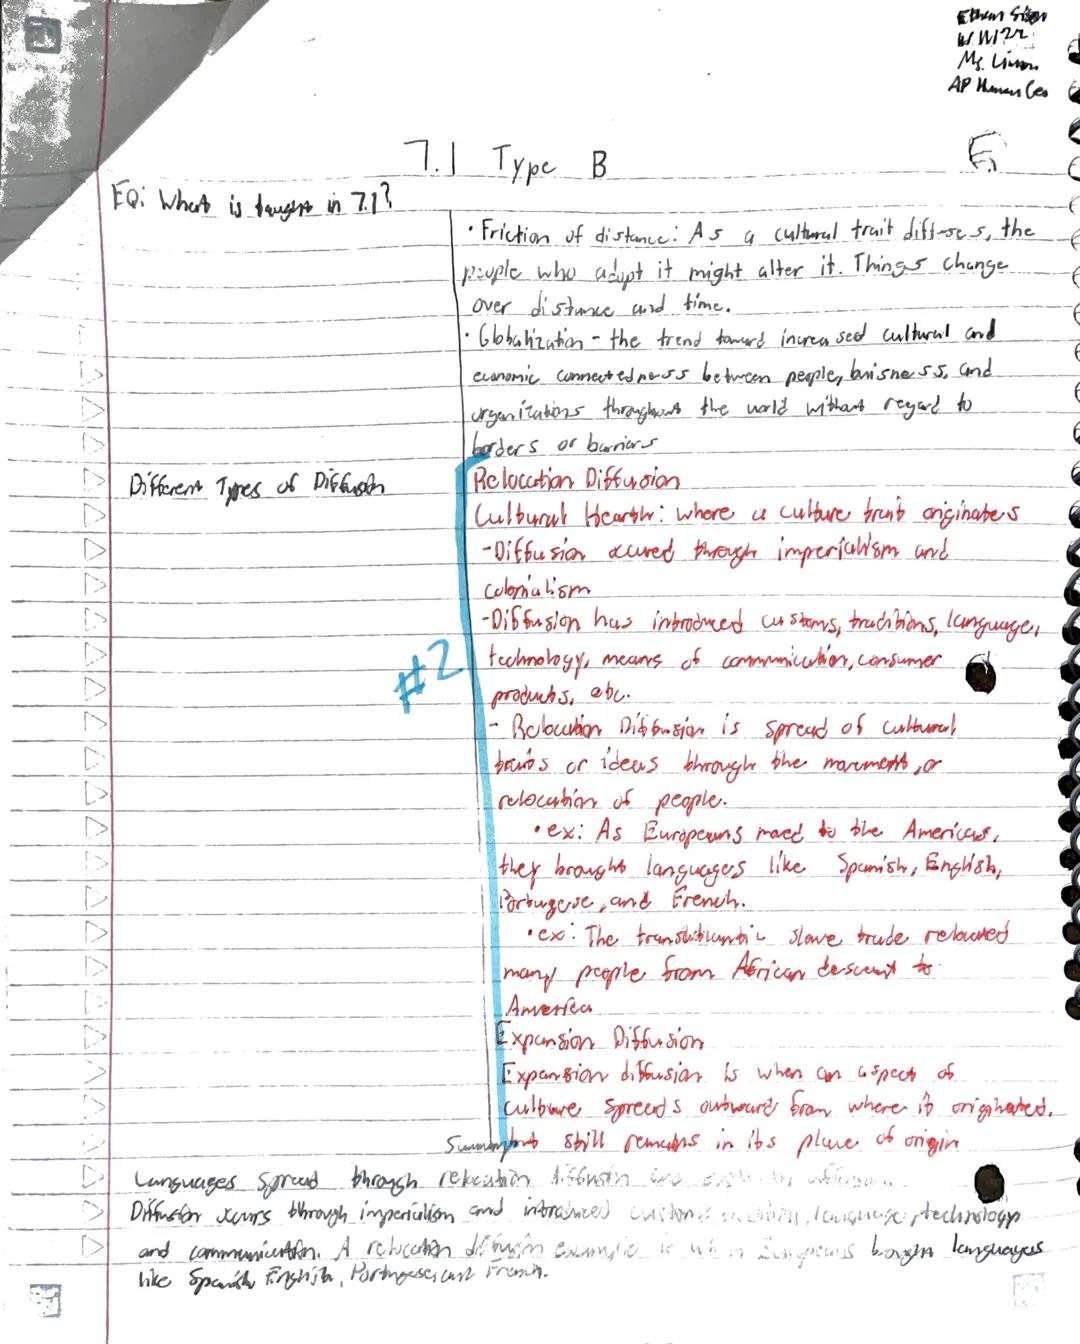 Ethan
Ms.
AP Human Geo
7.1 Type B
EQ: What is taught in 7.1?
• Friction of distance: As a cultural trait diffuses, the
people who adopt it might alter it. Things change
over distance and time.
• Globalization - the trend toward increased cultural and
economic connectedness between people, buisness, and
organizations throughout the world without regard to
borders or barriers
Different Types of Diffusion
Relocation Diffusion
Cultural Hearth: where a culture trait originates
-Diffusion occured through imperialism and
colonialism
-Diffusion has introduced customs, traditions, language,
#2
technology, means of communication, consumer
products, etc.
- Relocation Diffusion is spread of cultural
traits or ideas through the movement, or
relocation of people.
• ex: As Europeans moved to the Americas,
they brought languages like Spanish, English,
Portugese, and French.
• ex: The transatlantic slave trade relocated
many people from African descent to
America
Expansion Diffusion
Expansion diffusion is when an aspect of
culture spreads outward from where it originated,
but still remains in its place of origin
Summary
Languages spread through relocation diffusion
Diffusion occurs through imperialism and introduced customs, language, technology
and communication. A relocation diffusion example is when Europeans brought languages
like Spanish English, Portugese, and French.